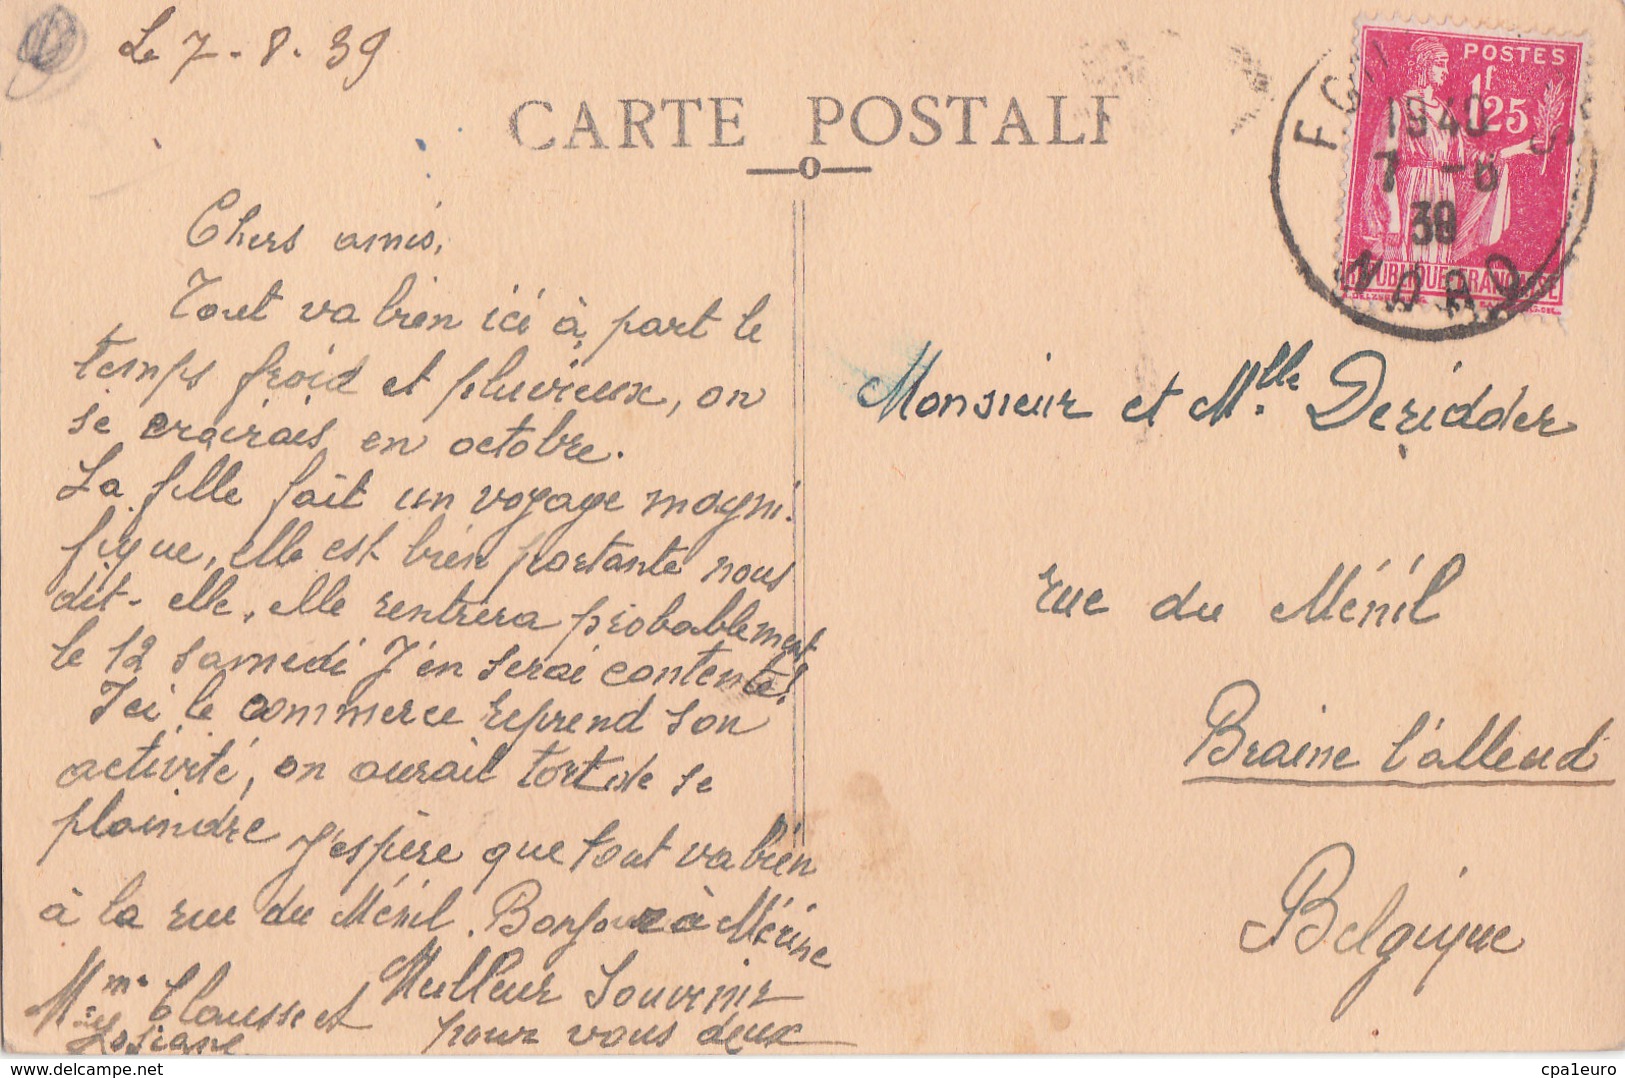 Le 7-8-39
CARTE POSTALE
Chers amis,
Tout va bien ici à part le
temps froid et pluvieux, on
se croirais en octobre.
La fille fait un voyage magni-
fique, elle est bien portante nous
dit-elle, elle rentrera probablement
le 12 samedi J'en serai contente!
Ici le commerce reprend son
activité, on aurait tort de se
plaindre J'espère que tout va bien
à la rue du Ménil. Bonjour à Mérine
Meilleur Souvenir
pour vous deux
Mme Clausse et
Josiane
POSTES
1f25
REPUBLIQUE FRANÇAISE
1940
7 -8
39
NORD
Monsieur et Mlle Deridder
rue du Ménil
Braine l'alleud
Belgique
delcampe.net
cpa1euro